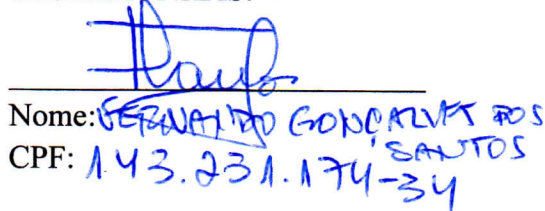 Nome: FERNANDO GONÇALVES DOS
SANTOS
CPF: 143.231.174-34